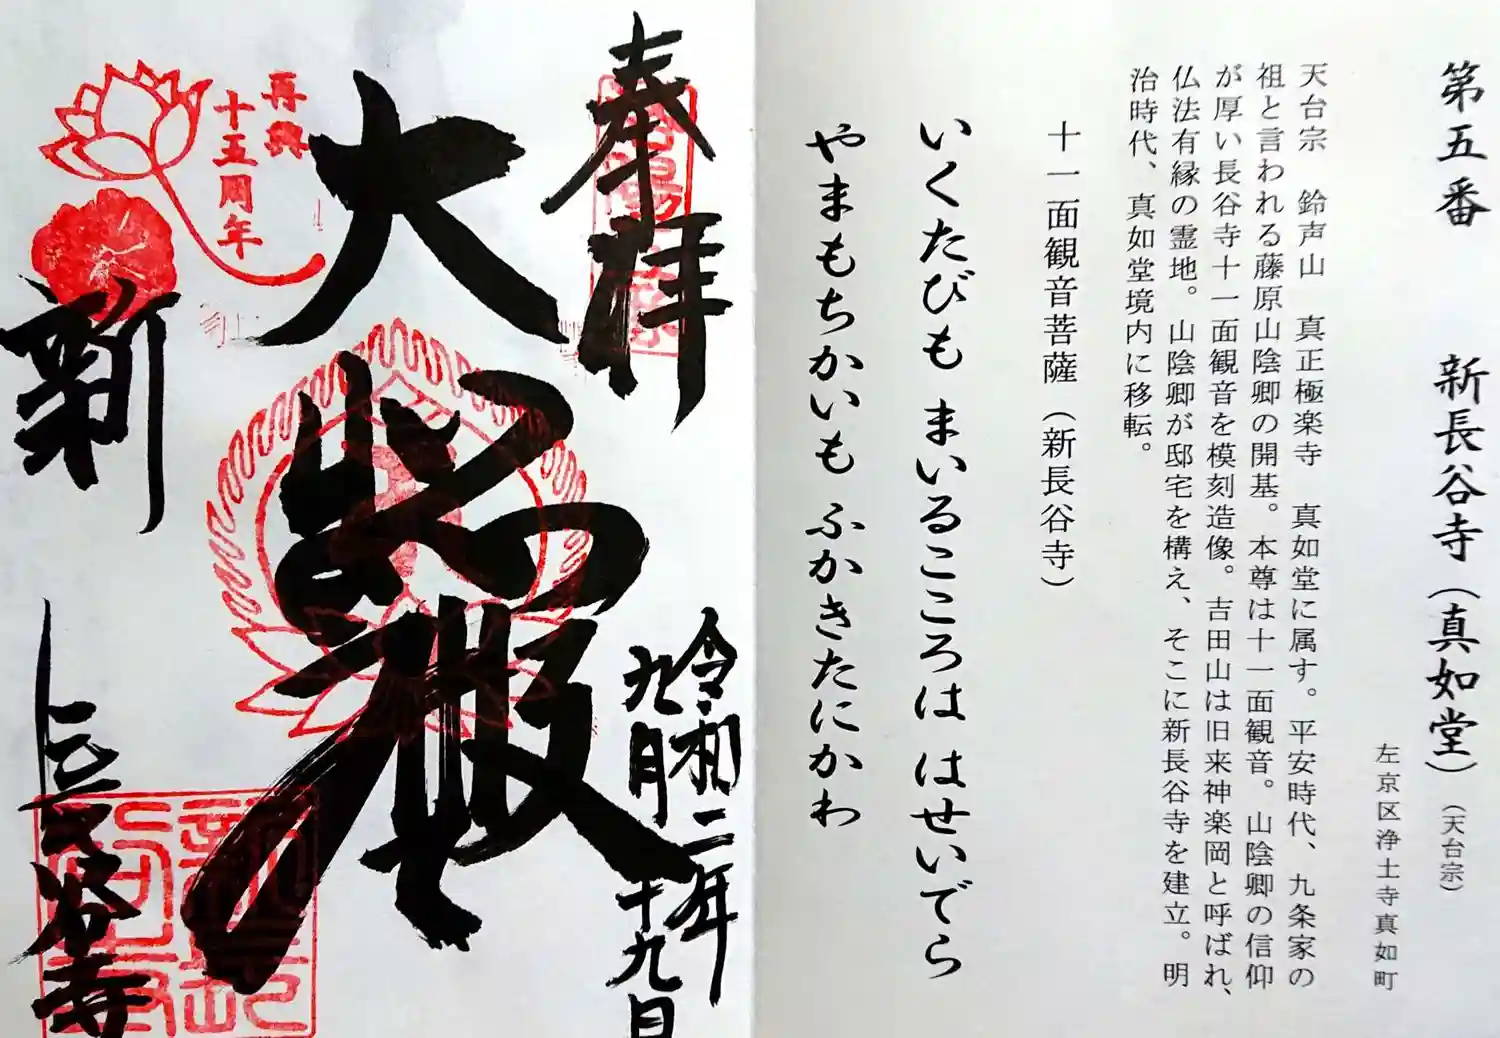 第五番　新長谷寺（真如堂）（天台宗）
左京区浄土寺真如町
天台宗　鈴声山　真正極楽寺　真如堂に属す。平安時代、九条家の
祖と言われる藤原山陰卿の開基。本尊は十一面観音。山陰卿の信仰
が厚い長谷寺十一面観音を模刻造像。吉田山は旧来神楽岡と呼ばれ、
仏法有縁の霊地。山陰卿が邸宅を構え、そこに新長谷寺を建立。明
治時代、真如堂境内に移転。
十一面観音菩薩（新長谷寺）
いくたびも まいるこころは はせいでら
やまもちかいも ふかきたにかわ
奉拝
令和二年
九月十九日
大悲殿
再興
十五周年
新長谷寺